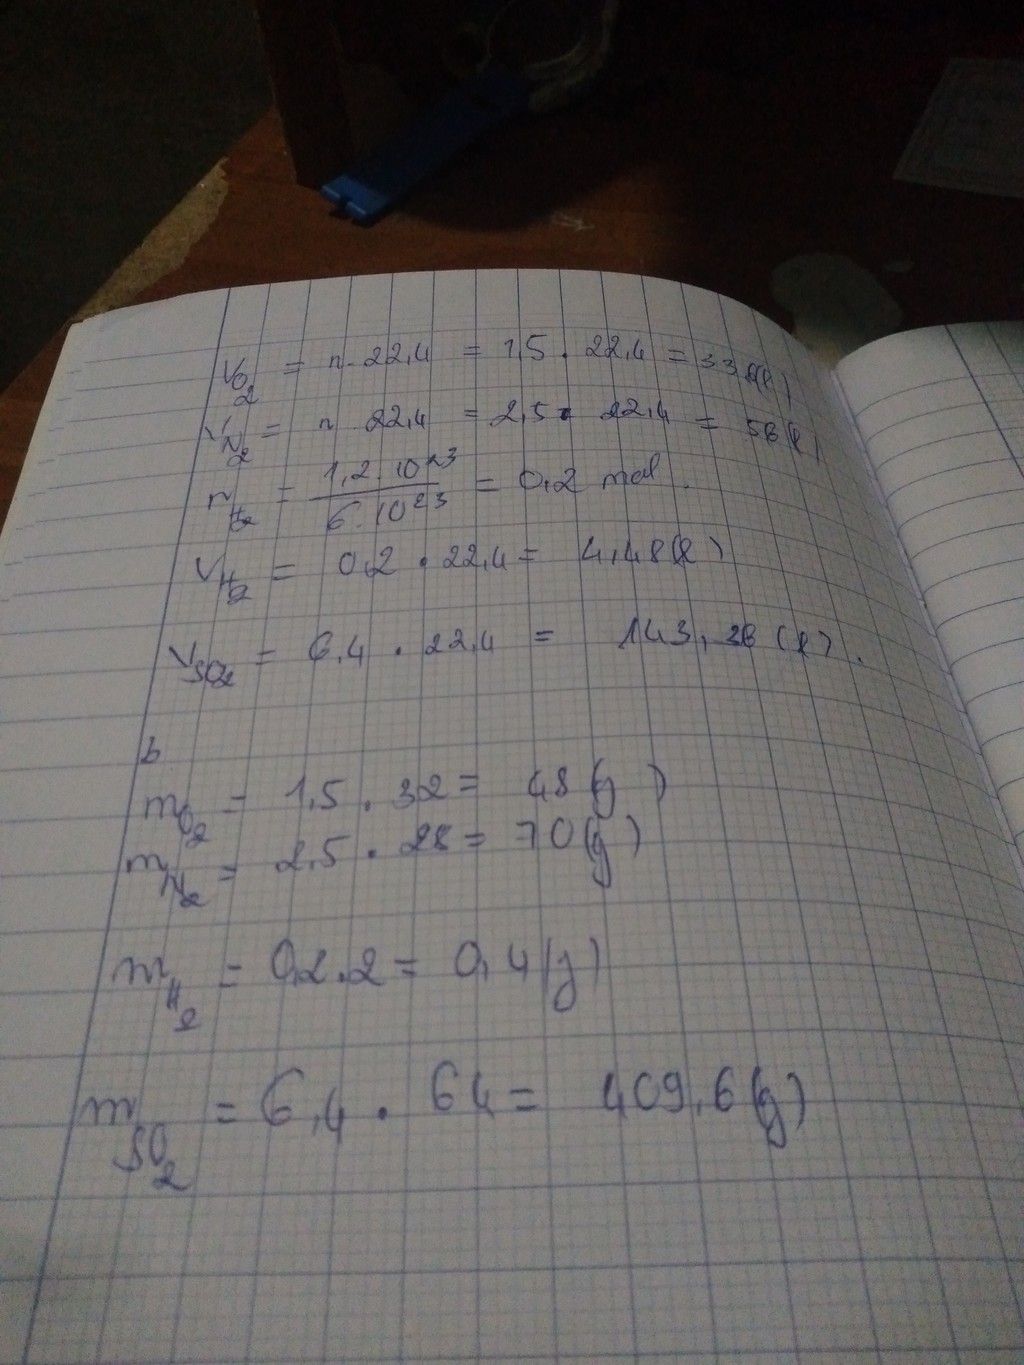 V O2 = n. 22,4 = 1,5 . 22,4 = 33,6(l)
V N2 = n 22,4 = 2,5 . 22,4 = 56(l)
n H2 = 1,2.10^23 / 6.10^23 = 0,2 mol.
V H2 = 0,2 . 22,4 = 4,48(l)
V SO2 = 6,4 . 22,4 = 143,36 (l).
b
m O2 = 1,5 . 32 = 48(g)
m N2 = 2,5 . 28 = 70(g)
m H2 = 0,2.2 = 0,4(g)
m SO2 = 6,4 . 64 = 409,6(g)